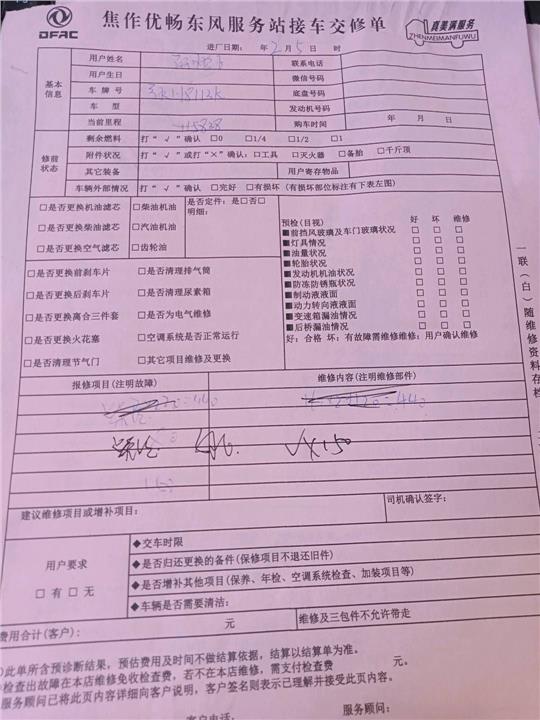 DFAC
焦作优畅东风服务站接车交修单
真美满服务
ZHENMEIMANFUWU
进厂日期： 年 2 月 5 日 时
基本信息
用户姓名 联系电话
用户生日 微信号码
车牌号 底盘号码
车型 发动机号码
当前里程 购车时间 年 月 日
修前状态
剩余燃料 打“√”确认 □0 □1/4 □1/2 □1
附件状况 打“√”或打“×”确认：□工具 □灭火器 □备胎 □千斤顶
其它装备 用户寄存物品
车辆外部情况 打“√”确认 □完好 □有损坏（有损坏部位标注有下表左图）
□是否更换机油滤芯 □柴油机油 是否定件：是□否□
明细：
□是否更换柴油滤芯 □汽油机油
□是否更换空气滤芯 □齿轮油
预检(目视) 好 坏 维修
■前挡风玻璃及车门玻璃状况 □ □ □
■灯具情况 □ □ □
■油量状况 □ □ □
■轮胎状况 □ □ □
■发动机机油状况 □ □ □
■防冻防锈瓶状况 □ □ □
■制动液液面 □ □ □
■动力转向液液面 □ □ □
■变速箱漏油情况 □ □ □
■后桥漏油情况 □ □ □
好：合格 坏：有故障需维修维修：用户确认维修
□是否更换前刹车片 □是否清理排气筒
□是否更换后刹车片 □是否清理尿素箱
□是否更换离合三件套 □是否为电气维修
□是否更换火花塞 □空调系统是否正常运行
□是否清理节气门 □其它项目维修及更换
一联（白）随维修资料存档
报修项目(注明故障) 维修内容(注明维修部件)
建议维修项目或增补项目： 司机确认签字：
用户要求
□有 □无
◆交车时限
◆是否归还更换的备件(保修项目不退还旧件)
◆是否增补其他项目(保养、年检、空调系统检查、加装项目等)
◆车辆是否需要清洁：
费用合计(客户)： 元 维修及三包件不允许带走
此单所含预诊断结果，预估费用及时间不做结算依据，结算以结算单为准。
检查出故障在本店维修免收检查费，若不在本店维修，需支付检查费 元。
服务顾问已将此页内容详细向客户说明，客户签名则表示已理解并接受此页内容。
客户电话： 服务顾问：